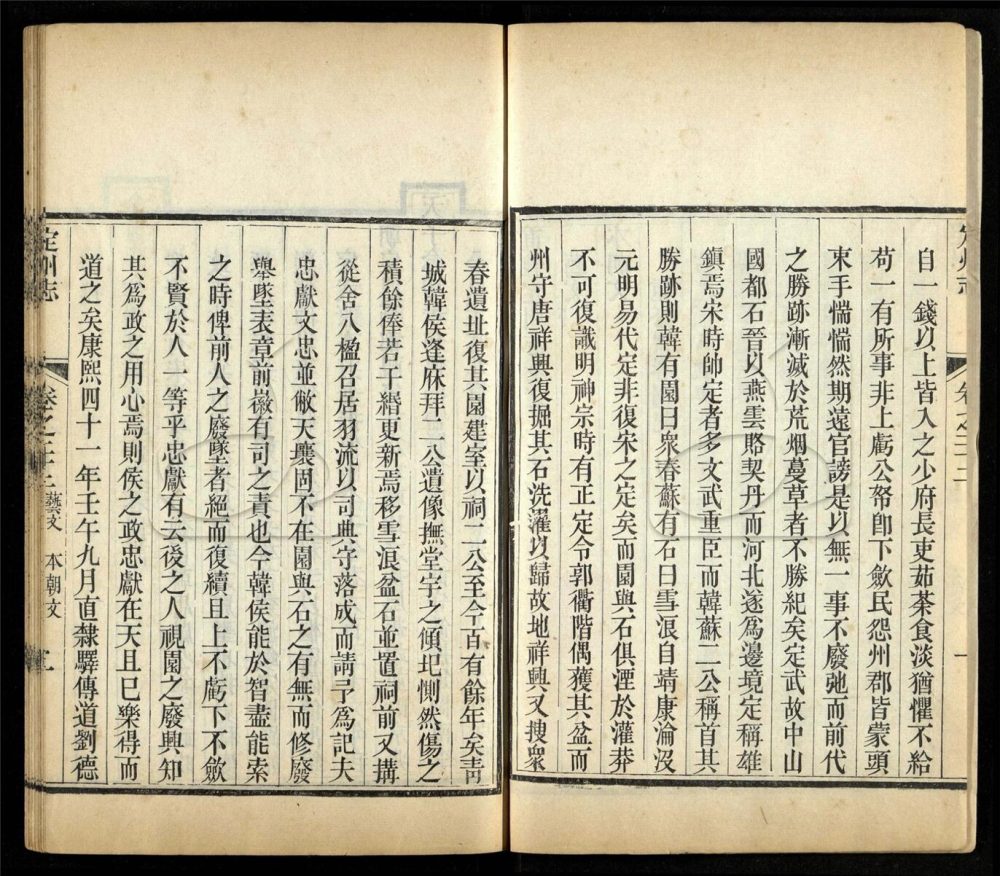 自一錢以上皆入之少府長吏茹荼食淡猶懼不給
苟一有所事非上虧公帑卽下歛民怨州郡皆蒙頭
束手惴惴然期遠官謗是以無一事不廢弛而前代
之勝跡漸滅於荒烟蔓草者不勝紀矣定武故中山
國都石晉以燕雲賂契丹而河北遂爲邊境定稱雄
鎮焉宋時帥定者多文武重臣而韓蘇二公稱首其
勝跡則韓有園曰衆春蘇有石曰雪浪自靖康淪沒
元明易代定非復宋之定矣而園與石俱湮於灌莽
不可復識明神宗時有正定令郭衢階偶獲其盆而
州守唐祥興復掘其石洗濯以歸故地祥興又搜衆
春遺址復其園建室以祠二公至今百有餘年矣靑
城韓侯逢庥拜二公遺像撫堂宇之傾圮惻然傷之
積餘俸若干緡更新焉移雪浪盆石並置祠前又搆
從舍八楹召居羽流以司典守落成而請予爲記夫
忠獻文忠並敝天壤固不在園與石之有無而修廢
舉墜表章前徽有司之責也今韓侯能於智盡能索
之時俾前人之廢墜者絕而復續且上不虧下不歛
不賢於人一等乎忠獻有云後之人視園之廢興知
其爲政之用心焉則侯之政忠獻在天且巳樂得而
道之矣康熙四十一年壬午九月直隸驛傳道劉德
定州志
卷之二十二
藝文 本朝文